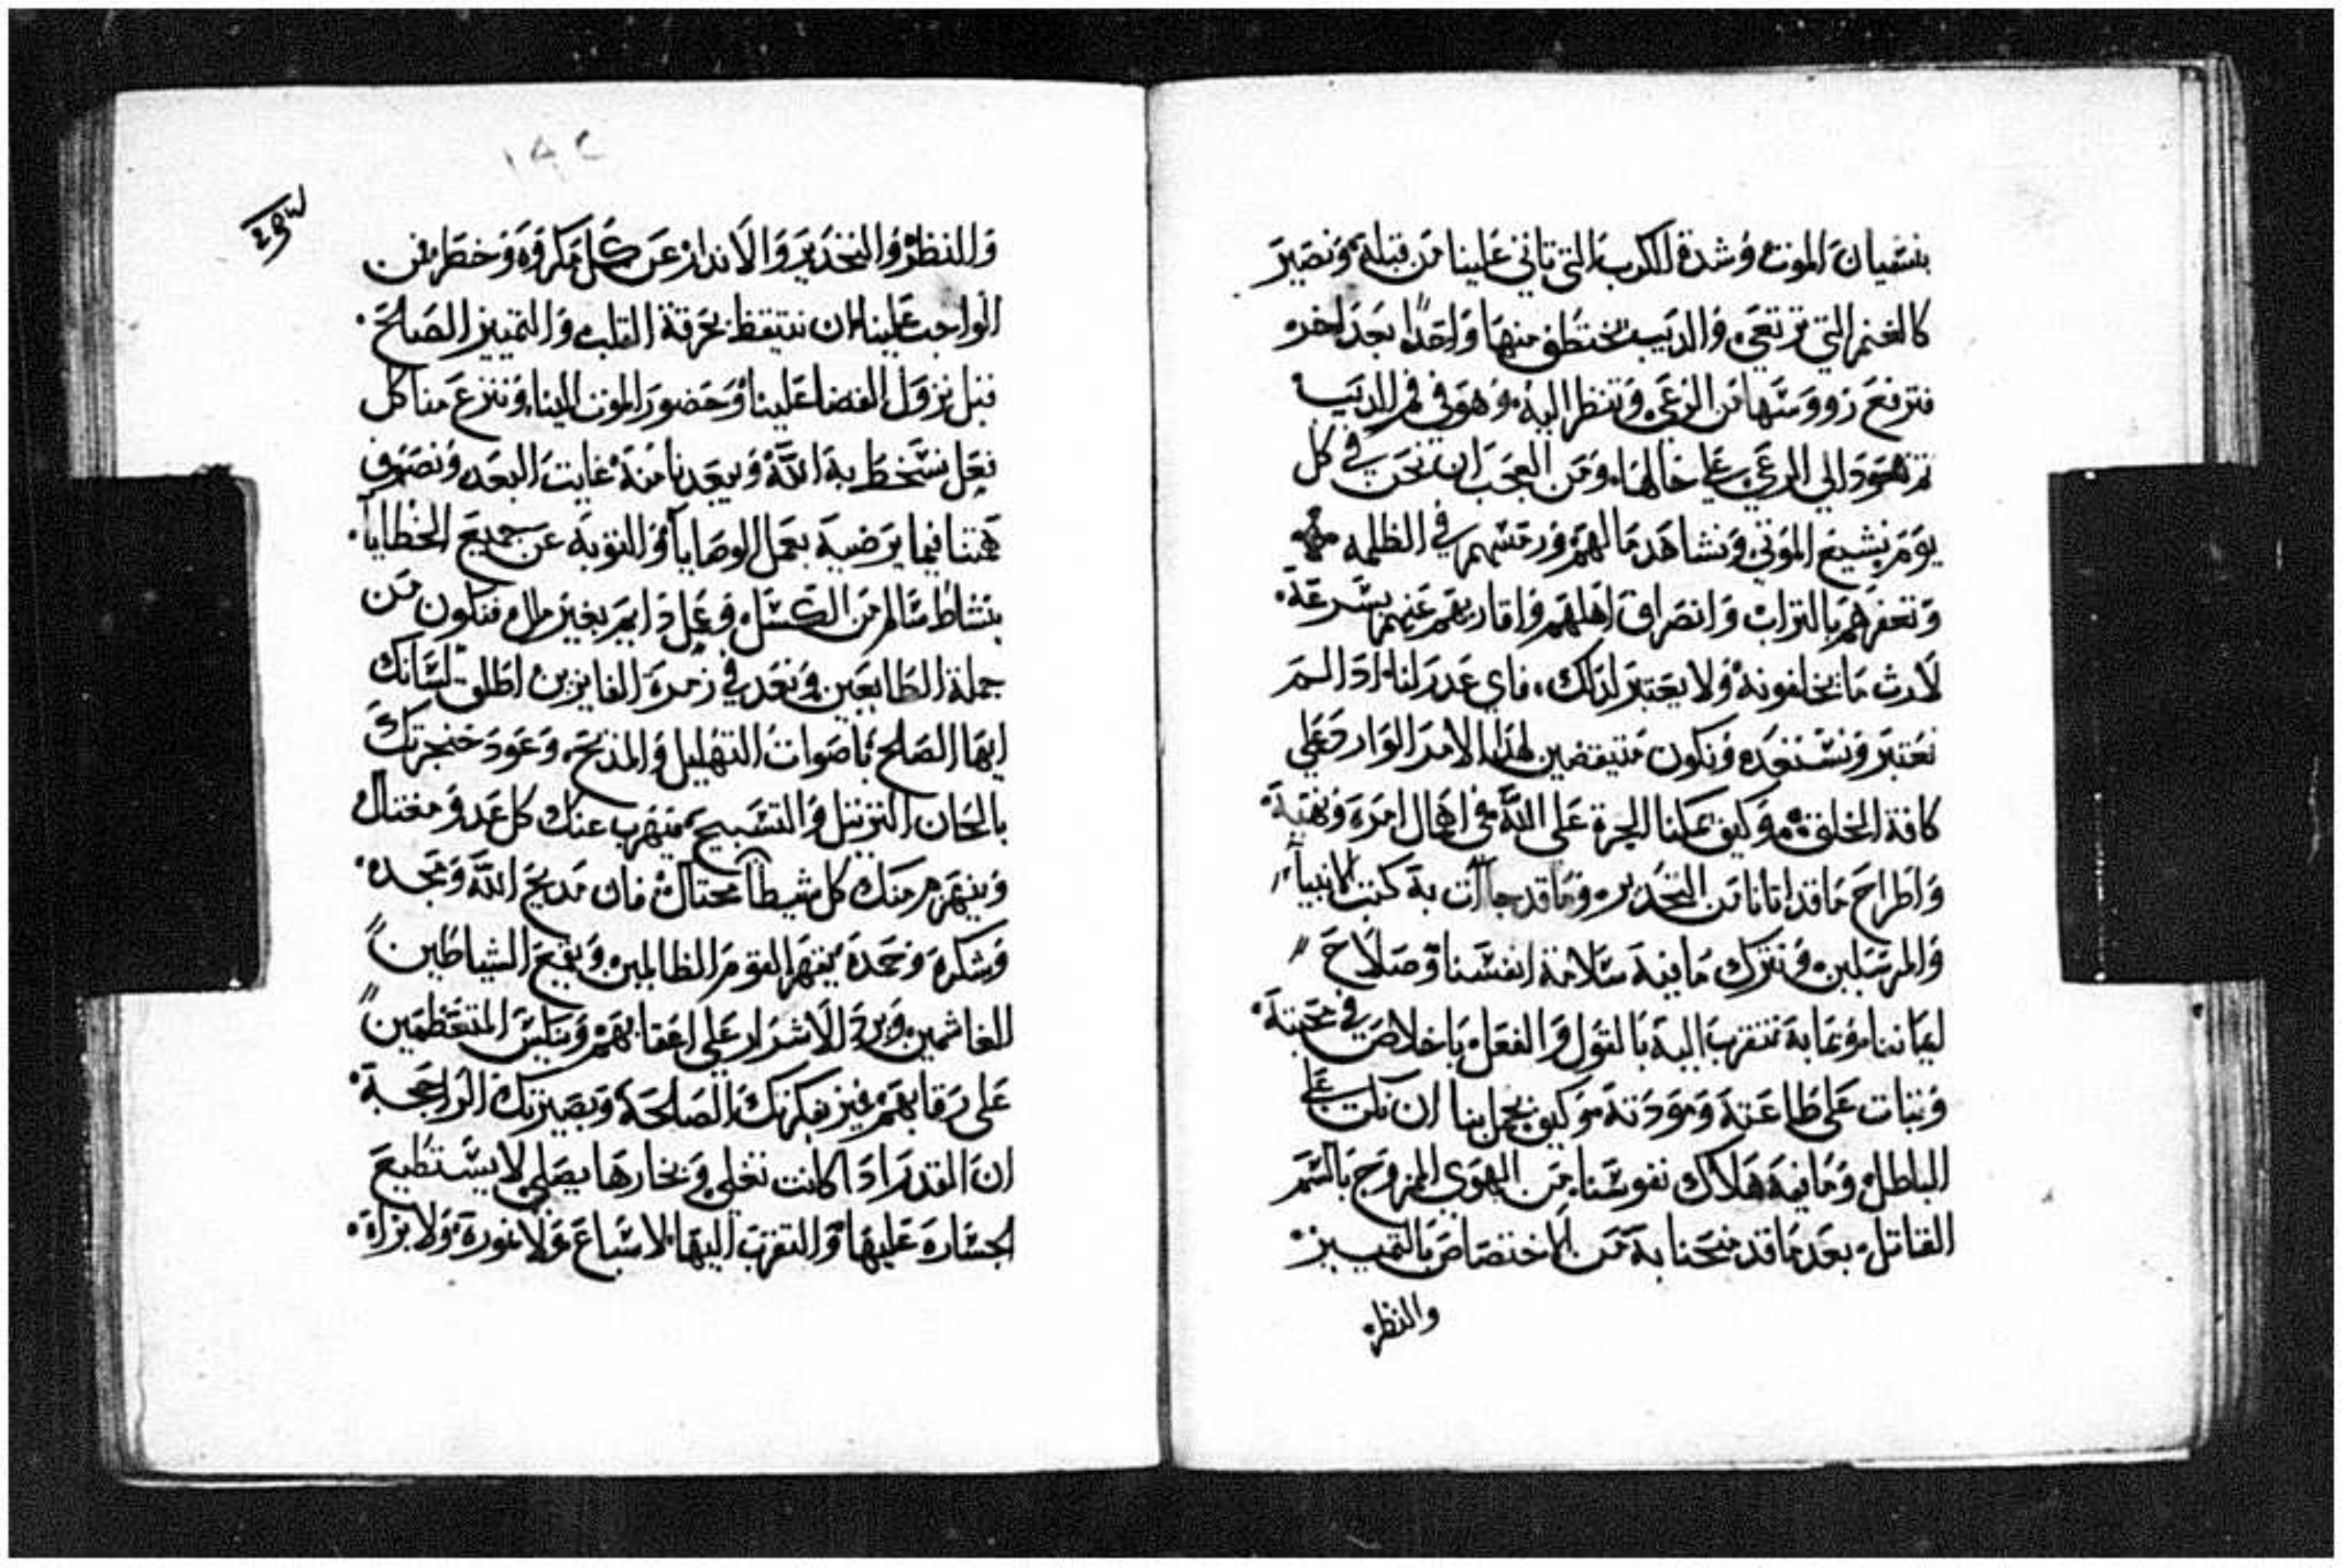 بنسيان الموت وشدة الكرب التي تاتي علينا من قبله ونصير
كالغنم التي ترتعي والديب يختطف منها واحدًا بعد اخر
فترفع رووسها من الرعي وتنظر اليه وهو في فم الديب
تم تعود الي الرعي علي حالها ومن العجب ان نحن في كل
يوم نشيع الموتي ونشاهد مالهم ورمسهم في الظلمه
وتعفرهم بالتراب وانصراف اهلهم واقاربهم عنهم بسرعة
لارث ما يخلفونه ولا يعتبر لذلك فاي عدر لنا ادا لم
نعتبر ونستعد ونكون متيقضين لهدا الامر الوارد علي
كافة الخلقة وكيف يمكنا الجرة علي الله في اهمال امره ونهيه
واطراح ما قد اتانا من التحدير وما قد جاات به كتب الانبيا
والمرسلين ونترك ما فيه سلامة انفسنا وصلاح
ايماننا وما به نتقرب اليه بالقول والفعل باخلاص في محبته
وتبات علي طاعته ومودته وكيف يجمل بنا ان نلت علي
الباطل وما فيه هلاك نفوسنا من الهوي الممزوج بالسم
القاتل بعد ما قد منحنا به من الاختصاص بالتمييز
والنظر
١٩٢
والنظر والتحدير والاندار عن كل مكروه وخطر فمن
الواجب علينا ان نتيقظ بحرقة القلب والتمييز الصالح
قبل نزول القضا علينا وحضور الموت الينا وننزع منا كل
فعل نسخط به الله ويبعدنا منه غايت البعد ونصرف
همتنا فيما يرضيه بعمل الوصايا والتوبه عن جميع الخطايا
بنشاط سالم من الكسل وعمل دايم بغير ملل فنكون من
جملة الطايعين ونعد في زمرة الفايزين اطلق لسانك
ايها الصالح باصوات التهليل والمديح وعود حنجرتك
بالحان الترتيل والتسبيح فيهرب عنك كل عدو مغتال
وينهزم منك كل شيطان محتال فان مديح الله ومجده
وشكره وحمده يقهر القوم الظالمين ويقمع الشياطين
الغاشمين ويرد الاشرار علي اعقابهم وينكس المتعظمين
علي رقابهم فميز بفكرتك الصالحة وبصيرتك الراجحة
ان القدر ادا كانت تغلي وبخارها يصلي لا يستطيع
الجسارة عليها والتقرب اليها لاسباع ولا نمورة ولا بزاة